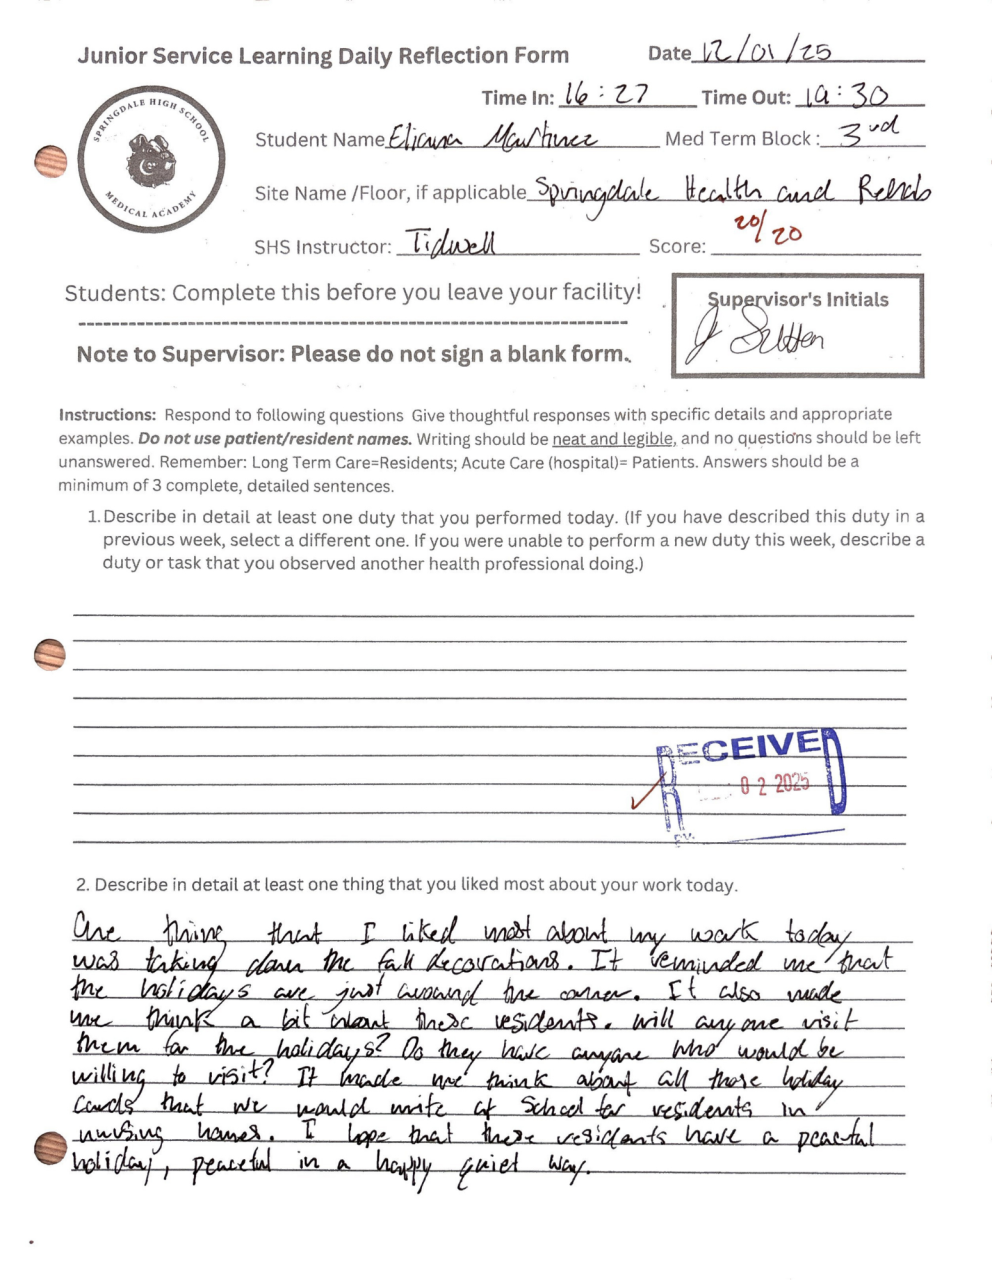 Junior Service Learning Daily Reflection Form
Date 12/01/25
Time In: 16:27 Time Out: 19:30
SPRINGDALE HIGH SCHOOL
MEDICAL ACADEMY
Student Name Eliana Martinez Med Term Block: 3rd
Site Name /Floor, if applicable Springdale Health and Rehab
SHS Instructor: Tidwell Score: 20/20
Students: Complete this before you leave your facility!
Supervisor's Initials
J Sutten
Note to Supervisor: Please do not sign a blank form.
Instructions: Respond to following questions Give thoughtful responses with specific details and appropriate
examples. Do not use patient/resident names. Writing should be neat and legible, and no questions should be left
unanswered. Remember: Long Term Care=Residents; Acute Care (hospital)= Patients. Answers should be a
minimum of 3 complete, detailed sentences.
1. Describe in detail at least one duty that you performed today. (If you have described this duty in a
previous week, select a different one. If you were unable to perform a new duty this week, describe a
duty or task that you observed another health professional doing.)
RECEIVED
02 2025
2. Describe in detail at least one thing that you liked most about your work today.
One thing that I liked most about my work today
was taking down the fall decorations. It reminded me that
the holidays are just around the corner. It also made
me think a bit about these residents. Will anyone visit
them for the holidays? Do they have anyone who would be
willing to visit? It made me think about all those holiday
cards that we would write at School for residents in
nursing homes. I hope that these residents have a peaceful
holiday, peaceful in a happy quiet way.